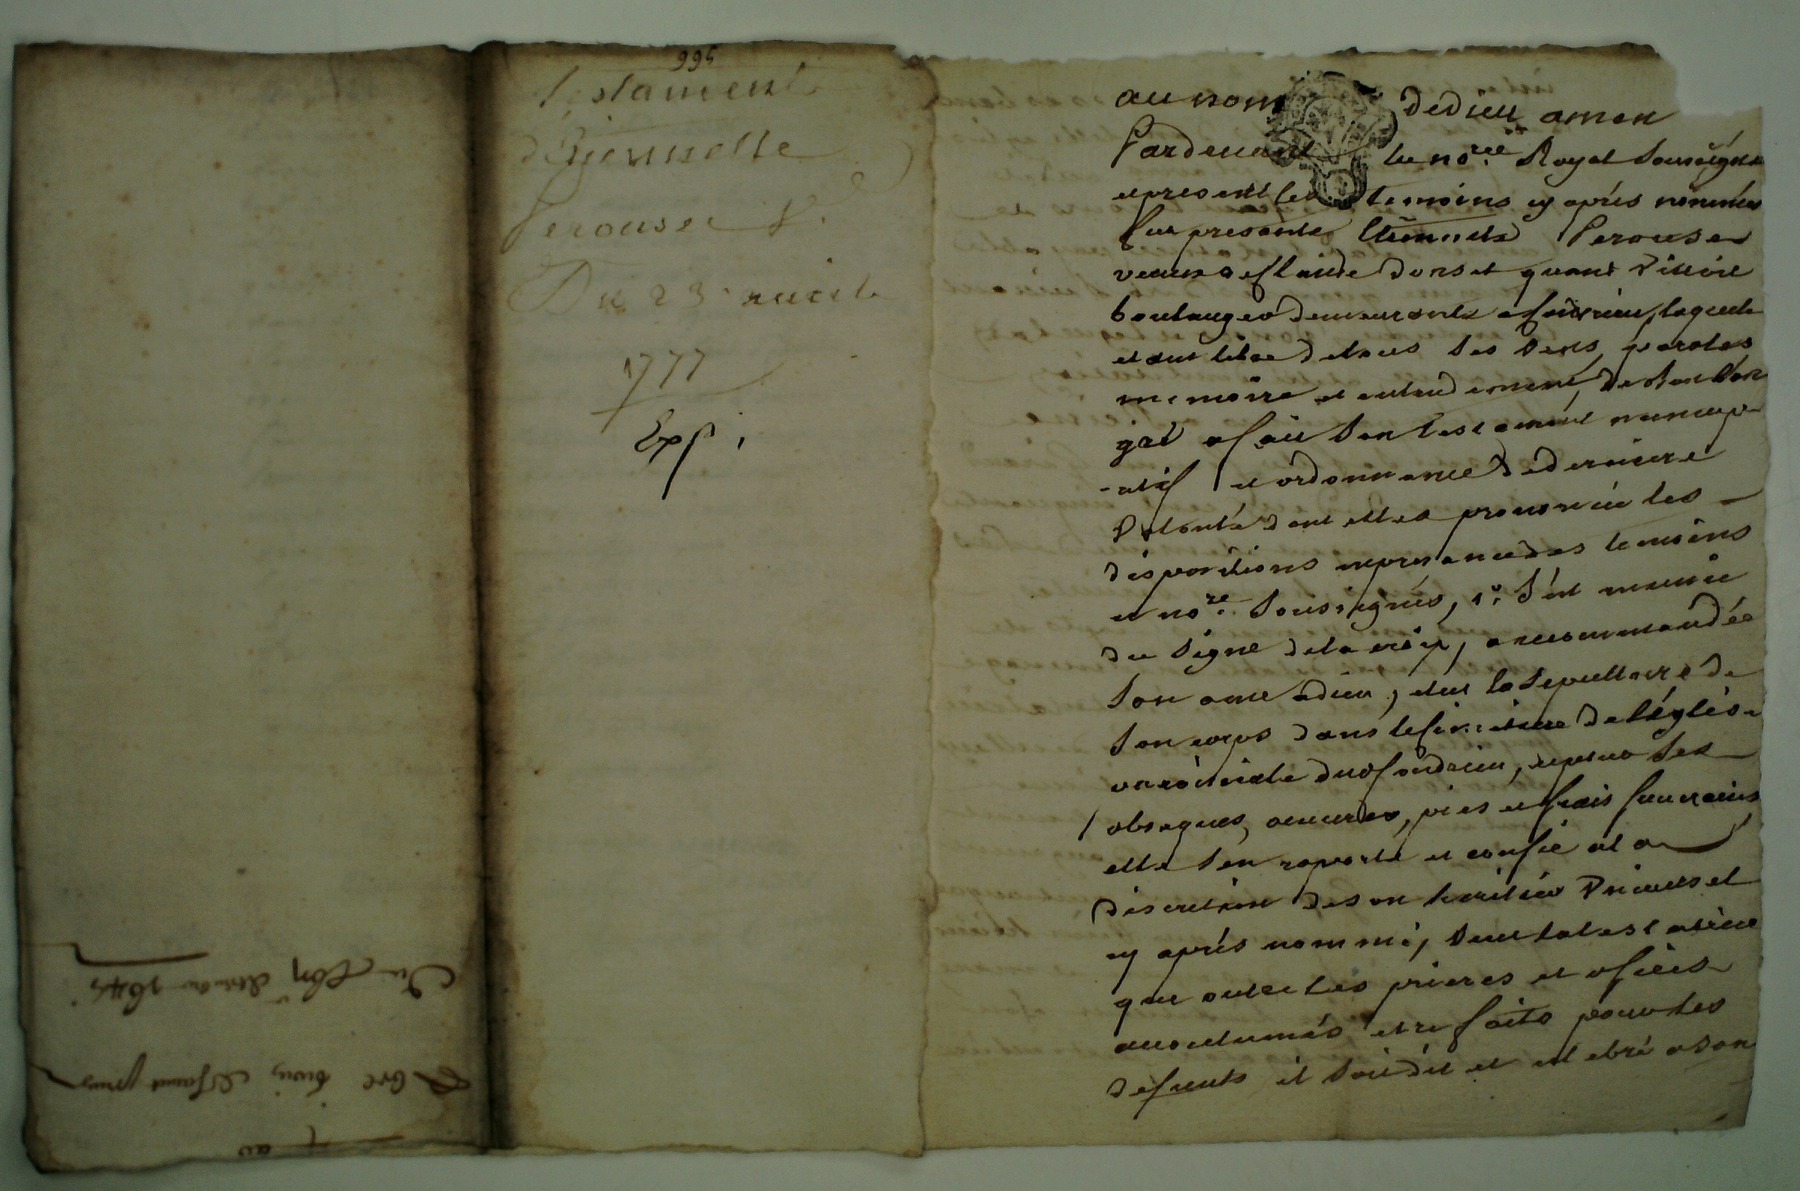 995
testament
d'Etiennette
Perouse V.e
Du 23 aout
1777
Exp.
au nom de dieu amen
Pardevant le no.re Royal soussigné
et present les temoins cy aprés nommés
fut presente Etiennette Perouse
veuve de Claude
boulanger demeurante laquelle
etant libre de tous ses sens, paroles
memoire et entendement, de son bon
gré a fait son testament nuncup-
-atif et ordonnance de derniere
volonté dont elle a prononcé les
dispositions en presence des temoins
et no.re soussignés, 1°. s'est munie
du signe de la croix, a recommandée
son ame a dieu, elut la sepulture de
son corps dans le cimetiere de l'églis
paroissiale dud fondrieu, et pour ses
obseques, oeuvres, pies et frais funeraires
elle s'en raporte et confie a la
discretion de son heritier universel
cy aprés nommé, veut la testatrice
que outre les prieres et ofices
accoutumés etre faits pour les
defunts il soit dit et celebré a son